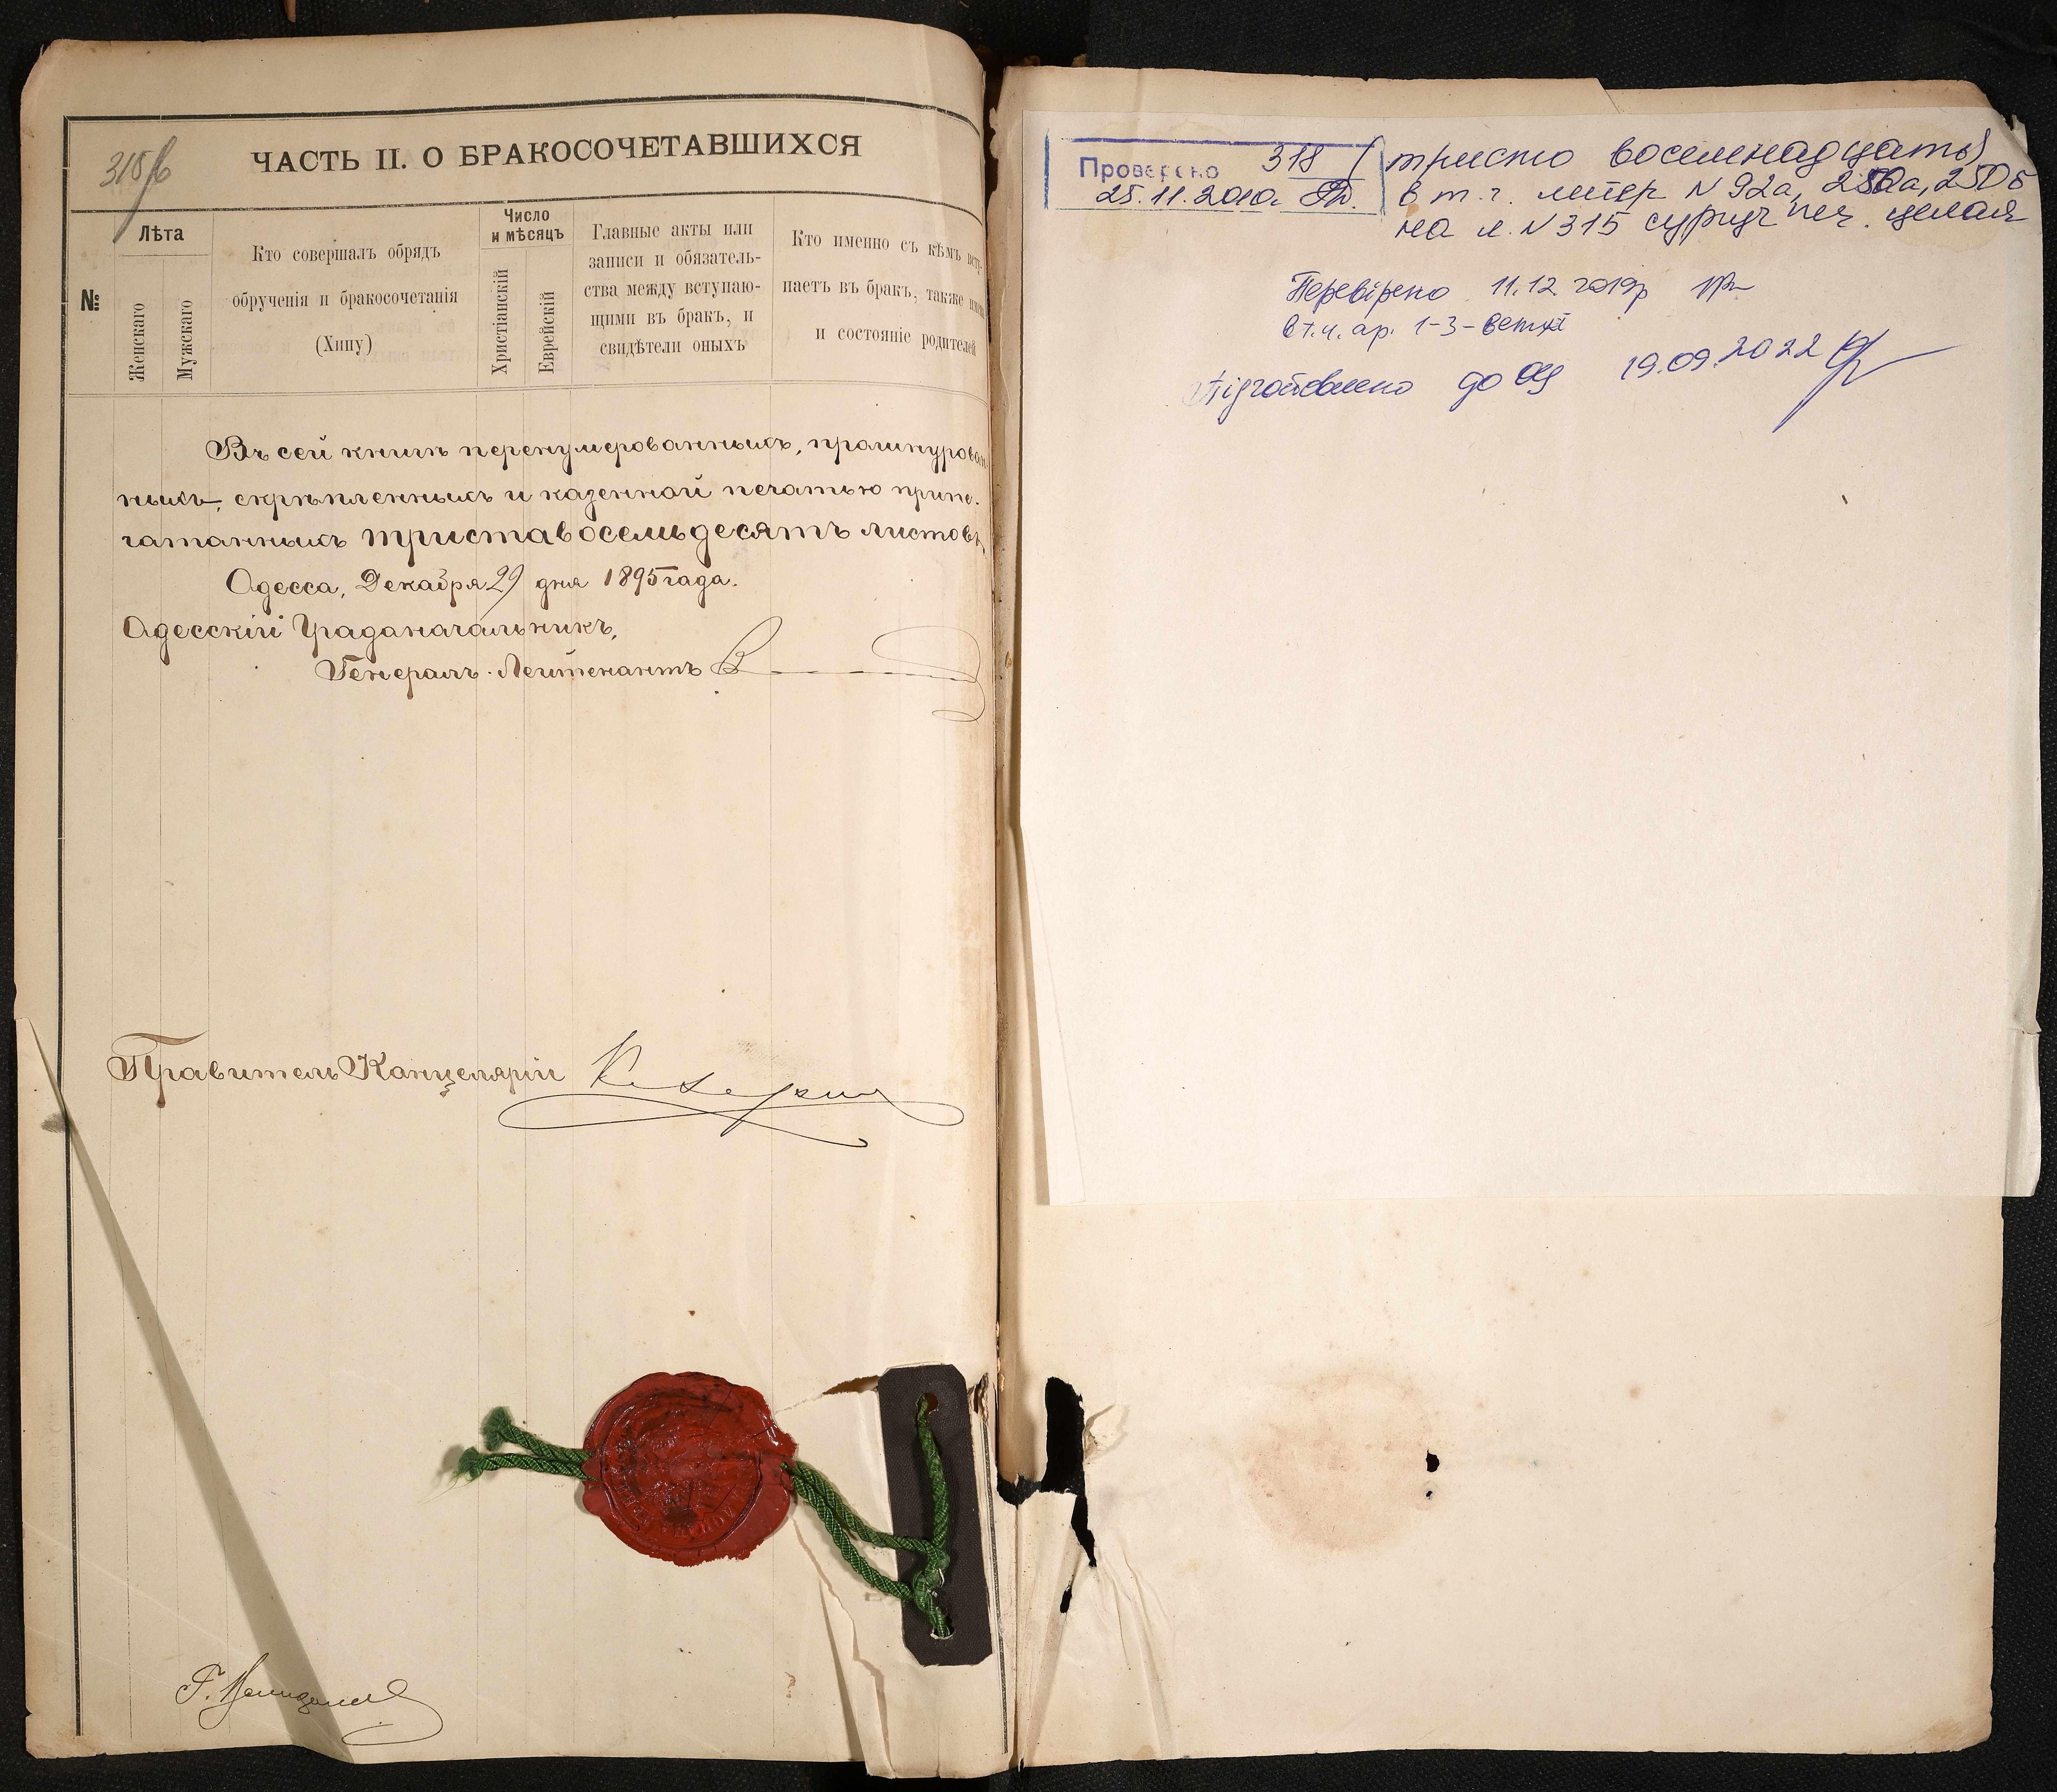 ЧАСТЬ II. О БРАКОСОЧЕТАВШИХСЯ
№
Лѣта
Женскаго
Мужскаго
Кто совершалъ обрядъ
обрученія и бракосочетанія
(Хипу)
Число
и мѣсяцъ
Христіанскій
Еврейскій
Главные акты или
записи и обязатель-
ства между вступаю-
щими въ бракъ, и
свидѣтели оныхъ
Кто именно съ кѣмъ всту-
паетъ въ бракъ, также имена
и состояніе родителей
Въ сей книгѣ перенумерованныхъ, прошнурован
ныхъ, скрѣпленныхъ и казенной печатью припе-
чатанныхъ триста восемьдесятъ листовъ
Одесса, Декабря 29 дня 1895 года.
Одесскій Градоначальникъ,
Генералъ-Лейтенантъ
Правитель Канцеляріи
Проверено 318 (тристо восемнадцать)
25.11.2010. в т.ч. литер N 92а, 250а, 250б
на л. N 315 сургуч печ. целая
Перевірено 11.12.2019р
в т.ч. ар. 1-3 - ветхі
Підготовлено до оц 19.09.2022